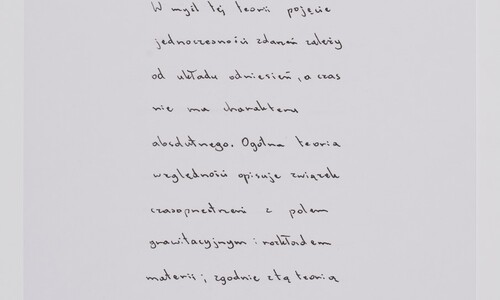 W myśl tej teorii pojęcie
jednoczesności zdarzeń zależy
od układu odniesień, a czas
nie ma charakteru
absolutnego. Ogólna teoria
względności opisuje związek
czasoprzestrzeni z polem
grawitacyjnym i rozkładem
materii; zgodnie z tą teorią